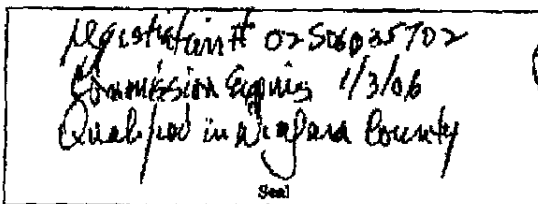 Registration # 02SO6035702
Commission Expires 1/3/06
Qualified in Niagara County
Seal